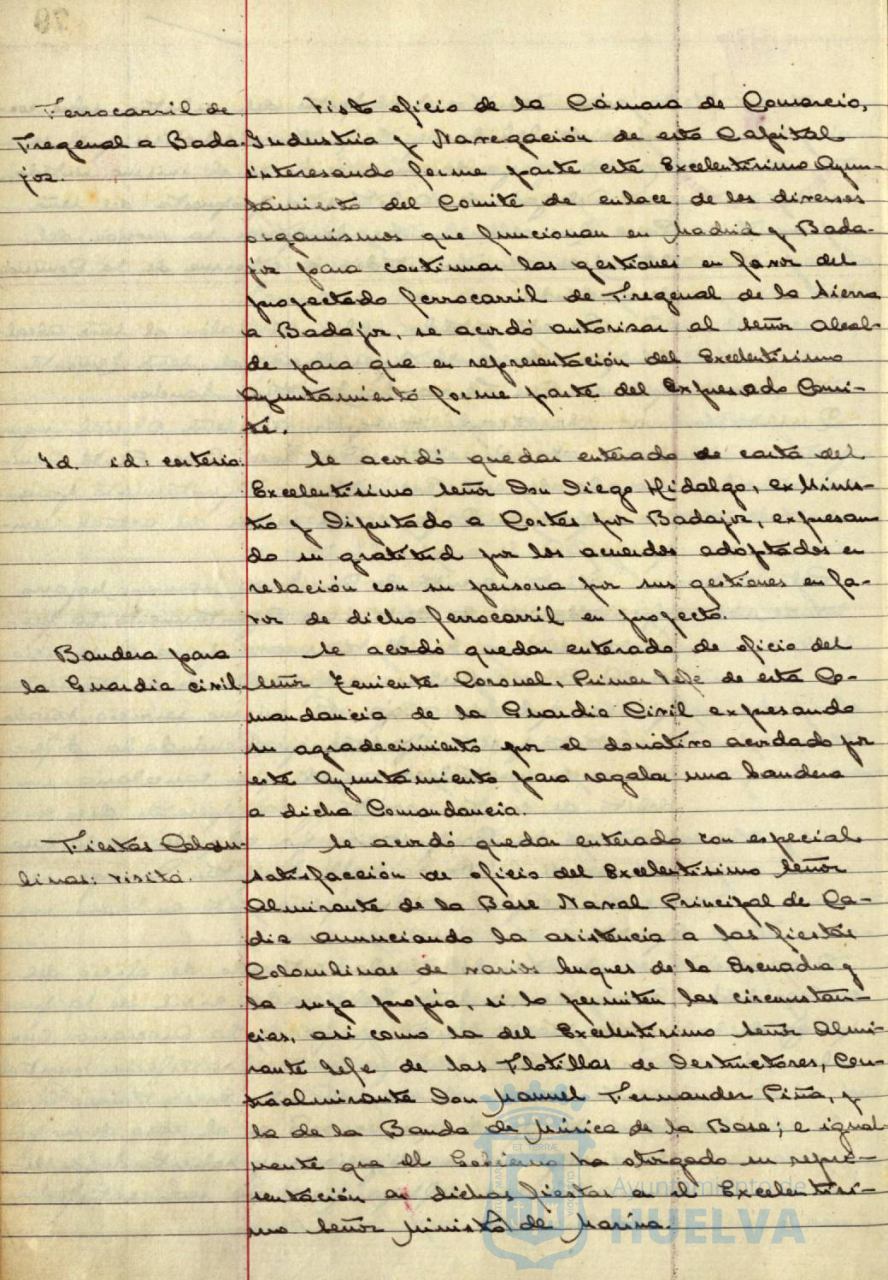 Ferrocarril de
Fregenal a Bada-
joz.
Visto oficio de la Cámara de Comercio,
Industria y Navegación de esta Capital
interesando forme parte este Excelentísimo Ayun-
tamiento del Comité de enlace de los diversos
organismos que funcionan en Madrid y Bada-
joz para continuar las gestiones en favor del
proyectado ferrocarril de Fregenal de la Sierra
a Badajoz, se acordó autorizar al Señor Alcal-
de para que en representación del Excelentísimo
Ayuntamiento forme parte del expresado Comi-
té.
Id. id: cortesía.
Se acordó quedar enterado de carta del
Excelentísimo Señor Don Diego Hidalgo, ex Minis-
tro y Diputado a Cortes por Badajoz, expresan-
do su gratitud por los acuerdos adoptados en
relación con su persona por sus gestiones en fa-
vor de dicho ferrocarril en proyecto.
Bandera para
la Guardia civil.
Se acordó quedar enterado de oficio del
Señor Teniente Coronel, Primer Jefe de esta Co-
mandancia de la Guardia Civil expresando
su agradecimiento por el donativo acordado por
este Ayuntamiento para regalar una bandera
a dicha Comandancia.
Fiestas Colom-
binas: visita.
Se acordó quedar enterado con especial
satisfacción de oficio del Excelentísimo Señor
Almirante de la Base Naval Principal de Ca-
diz anunciando la asistencia a las fiestas
Colombinas de varios buques de la Escuadra y
la suya propia, si lo permiten las circunstan-
cias, asi como la del Excelentísimo Señor Almi-
rante Jefe de las Flotillas de Destructores, Con-
traalmirante Don Manuel Fernandez Piña, y
la de la Banda de Música de la Base; e igual-
mente que el Gobierno ha otorgado su repre-
sentación en dichas fiestas en el Excelentísi-
mo Señor Ministro de Marina.
Ayuntamiento de
HUELVA